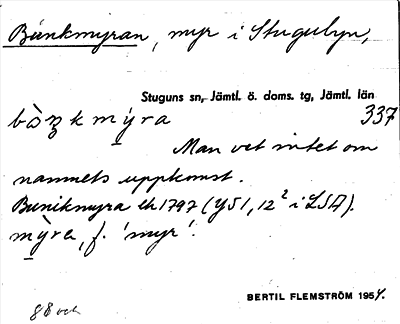 Bänkmyran, myr i Stugubyn,
Stuguns sn, Jämtl. ö. doms. tg, Jämtl. län
337
Man vet intet om
namnets uppkomst.
Bunikmyra lk 1797 (Y51, 12² i LSA).
mỳra, f. 'myr'.
BERTIL FLEMSTRÖM 1954.